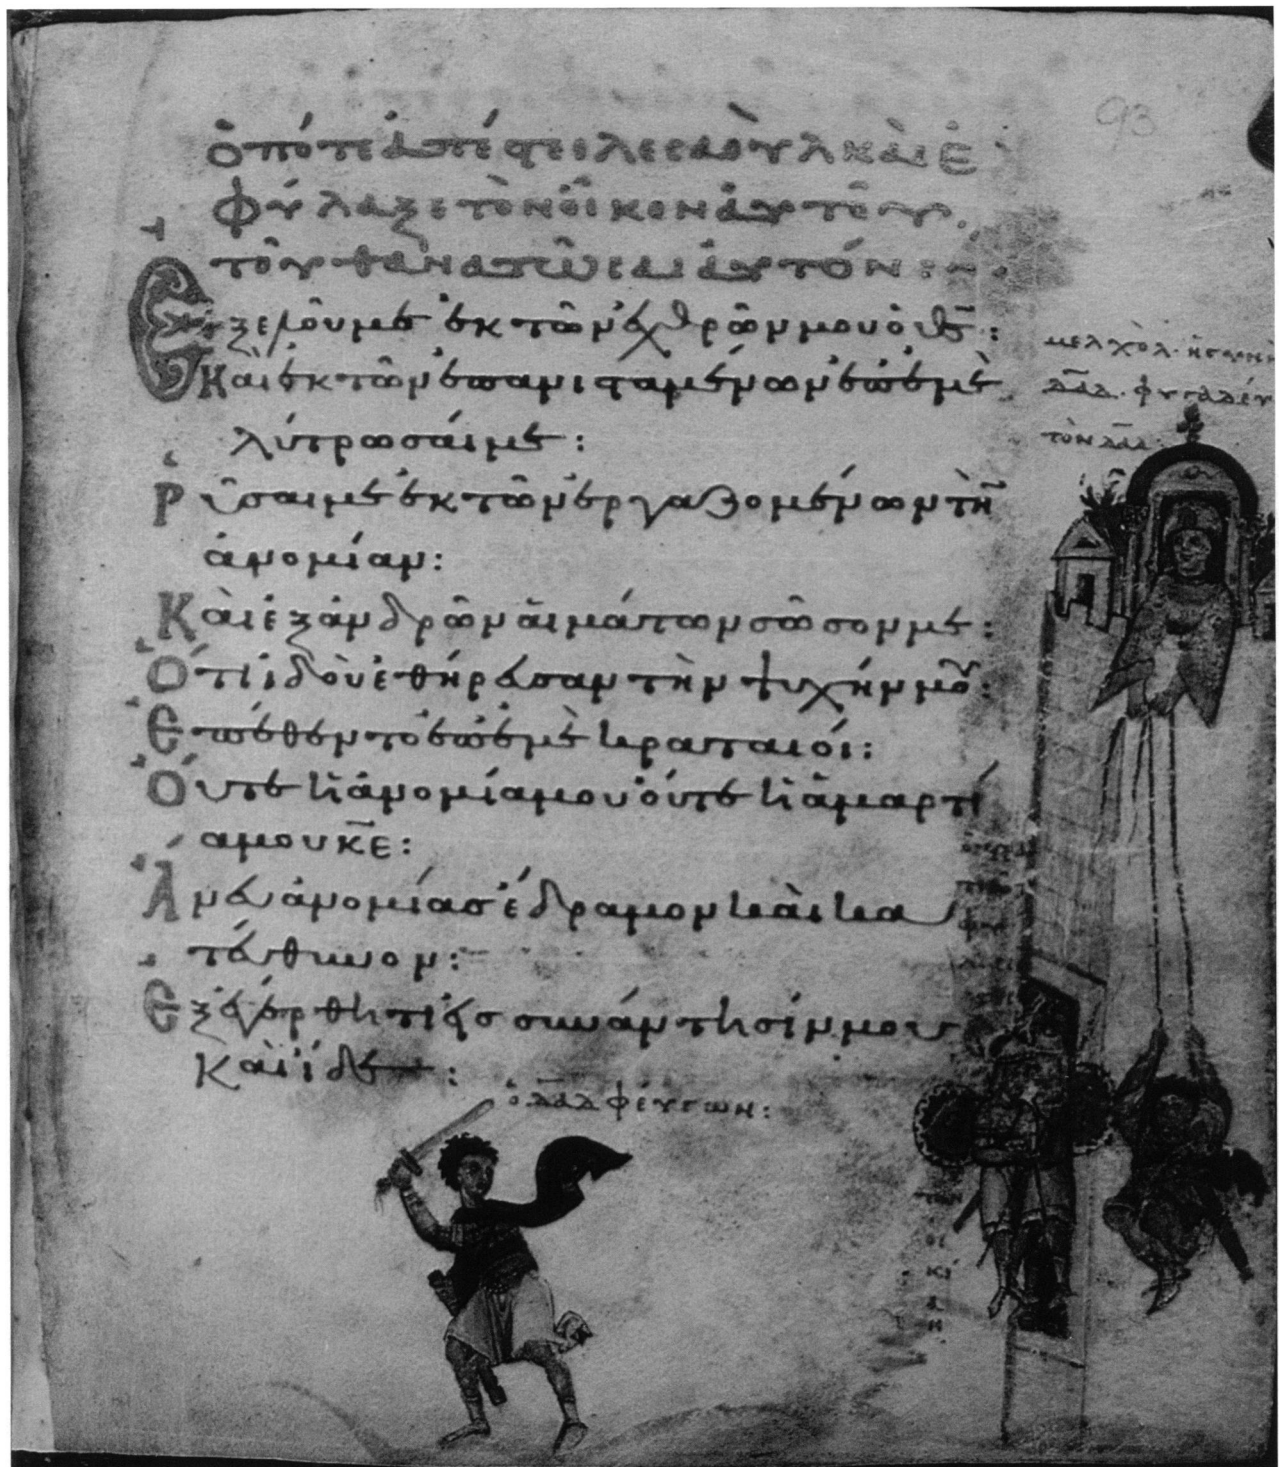 93
ὁπότε ἀπέστειλε σαοὺλ καὶ ἐ
φύλαξε τὸν οἶκον ἀυτοῦ
τοῦ θανατῶσαι ἀυτόν:
Ἐξελοῦ με ἐκ τῶν ἐχθρῶν μου ὁ θς̄:
Καὶ ἐκ τῶν ἐπανισταμένων ἐπ' ἐμὲ
λύτρωσαί με:
Ῥῦσαι με ἐκ τῶν ἐργαζομένων τὴν
ἀνομίαν:
Καὶ ἐξ ἀνδρῶν ἁιμάτων σῶσον με:
Ὅτι ἰδοὺ ἐθήρευσαν τὴν ψυχήν μου:
Ἐπέθεντο ἐπ' ἐμὲ κραταιοί:
Ὄυτε ἡ ἀνομία μου ὄυτε ἡ ἁμαρτί
α μου κ̄ε̄:
Ἄνευ ἀνομίας ἔδραμον καὶ κα
τέυθυνον:
Ἐξεγέρθητι ἐις συνάντησίν μου
καὶ ἴδε:
μελχὸλ· ἡ γυνὴ
δᾱδ̄· φυγαδέυ
τὸν δᾱδ̄
ὁ δᾱδ̄ φέυγων:
τὴν
οι
κί
α
ν